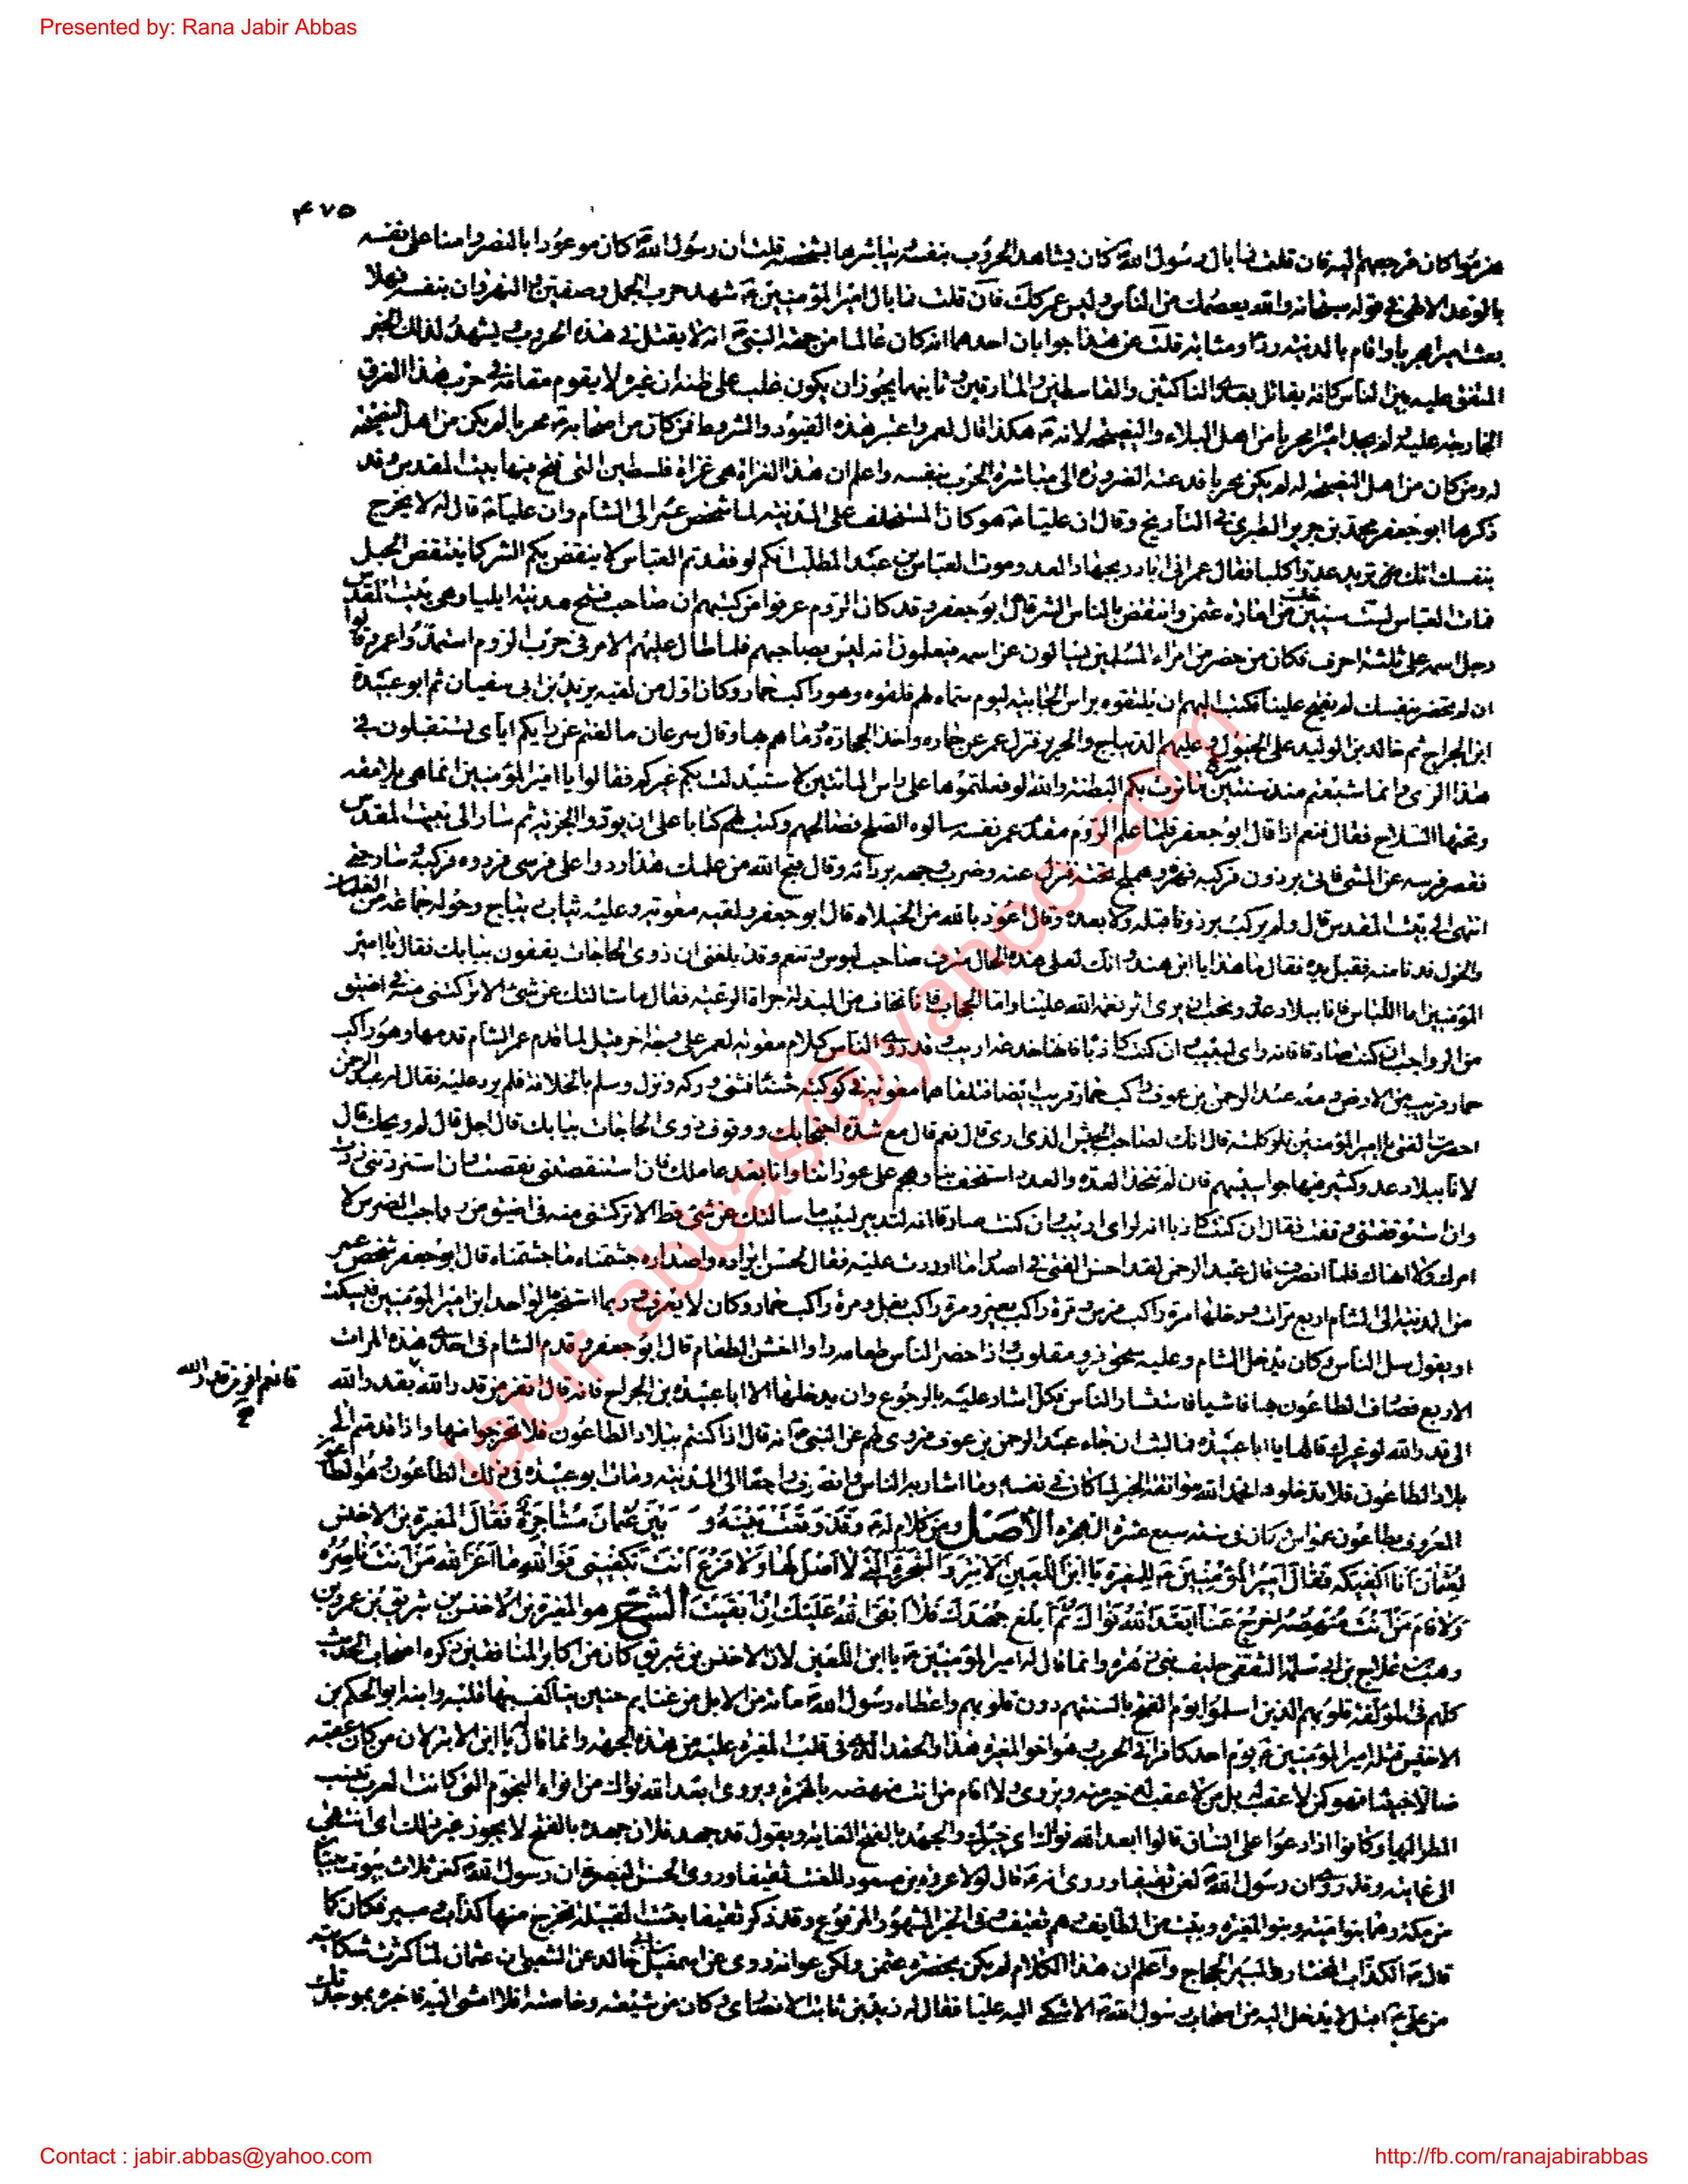 Presented by: Rana Jabir Abbas
۴۷۵
هزموا كان مرجعهم اليه فان قلت فما بال رسول الله ص كان يشاهد الحروب بنفسه يباشرها بشخصه قلت ان رسول الله ص كان موعودا بالنصر وامنا على نفسه
بالوعد الالهى فى قوله سبحانه والله يعصمك من الناس وليس عمر كذلك فان قلت فما بال امير المؤمنين ع شهد حرب الجمل وصفين والنهروان بنفسه فهلا
بعث اميرا محربا واقام بالمدينة ردءا ومثابة قلت عن هذا جوابان احدهما انه كان عالما من جهة النبى ص انه لا يقتل فى هذه الحروب يشهد لذلك الخبر
المتفق عليه بين الناس كافة يقاتل بعدى الناكثين والقاسطين والمارقين وثانيهما يجوز ان يكون غلب على ظنه ان غيره لا يقوم مقامه فى حرب هذا الفرق
الخارجة عليه لم يجد اميرا محربا من اهل البلاء والنصيحة لانه ع هكذا قال لعمر واعتبر هذه القيود والشروط فمن كان من اصحابه ع محربا لم يكن من اهل النصيحة
له ومن كان من اهل النصيحة له لم يكن محربا فدعته الضرورة الى مباشرة الحرب بنفسه واعلم ان هذا الغزاة هى غزاة فلسطين التى فتح منها بيت المقدس وقد
ذكرها ابو جعفر محمد بن جرير الطبرى فى التاريخ وقال ان عليا ع هو كان المستخلف على المدينة لما شخص عمر الى الشام وان عليا ع قال له لا تخرج
بنفسك انك تريد عدوا كلبا فقال عمر انى ابادر بجهاد العدو موت العباس بن عبد المطلب انكم لو فقدتم العباس لانتقض بكم الشر كما ينتقض الحبل
فمات العباس لست سنين خلت من امارة عثمن وانتقض بالناس الشر قال ابو جعفر وقد كان الروم عرفوا من كتبهم ان صاحب فتح مدينة ايليا وهى بيت المقدس
رجل اسمه على ثلثة احرف فكان من حضر من امراء المسلمين يسالون عن اسمه فيعلمون انه ليس بصاحبهم فلما طال عليهم الامر فى حرب الروم استمدوا عمر وقالوا
ان لم تحضر بنفسك لم يفتح علينا فكتب اليهم ان يلقوه براس الجابية ليوم سماه لهم فلقوه وهو راكب حمار وكان اول من لقيه يزيد بن ابى سفيان ثم ابو عبيدة
ابن الجراح ثم خالد بن الوليد على الخيول وعليهم الديباج والحرير فنزل عمر عن حماره واخذ الحجارة ورماهم بها وقال سرعان ما لفتم عن رايكم اياى تستقبلون فى
هذا الزى وانما شبعتم منذ سنتين سرع ما نزت بكم البطنة والله لو فعلتموها على راس المائتين لاستبدلت بكم غيركم فقالوا يا امير المؤمنين انما هى يلامقة
وتحتها السلاح فقال فنعم اذا قال ابو جعفر فلما علم الروم مقدم عمر نفسه سالوه الصلح فصالحهم وكتب لهم كتابا على ان يؤدوا الجزية ثم سار الى بيت المقدس
فقصر فرسه عن المشى فاتى ببرذون فركبه فهزه وهملج تحته فنزل عنه وضرب وجهه بردائه وقال قبح الله من علمك هذا ردوا على فرسى فردوه فركبه وسار حتى
انتهى الى بيت المقدس قال ولم يركب برذونا قبله ولا بعده وقال اعوذ بالله من الخيلاء قال ابو جعفر ولقيه معوية وعليه ثياب ديباج وحوله جماعة من الغلمان
والخول فدنا منه فقبل يده فقال ما هذا يا ابن هند وانك لعلى هذه الحال مترف صاحب لبوس وتنعم وقد بلغنى ان ذوى الحاجات يقفون ببابك فقال يا امير
المؤمنين اما اللباس فانا ببلاد عدو ونحب ان يرى اثر نعمة الله علينا واما الحجاب فانا نخاف من البذلة جراة الرعية فقال ما سالتك عن شىء الا تركتنى منه فى اضيق
من الرواجب ان كنت صادقا فانه راى لبيب وان كنت كاذبا فانها خدعة اريب وقد روى الناس كلام معوية لعمر على وجه اخر قيل لما قدم عمر الشام قدمها وهو راكب
حمار قريب من الارض ومعه عبد الرحمن بن عوف راكب حمار قريب ايضا فتلقاهما معوية فى كوكبة خشناء فثنى وركه ونزل وسلم بالخلافة فلم يرد عليه فقال له عبد الرحمن
احصرت الفتى يا امير المؤمنين فلو كلمته قال انك لصاحب الجيش الذى ارى قال نعم قال مع شدة احتجابك ووقوف ذوى الحاجات ببابك قال اجل قال لم ويحك قال
لانا ببلاد عدو كثير فيها جواسيسهم فان لم نتخذ العدة والعدد استخف بنا وهجم على عوراتنا وانا بعد عاملك فان استنقصتنى نقصت وان استزدتنى زدت
وان استوقفتنى وقفت فقال ان كنت كاذبا انه لراى اريب وان كنت صادقا انه لتدبير لبيب ما سالتك عن شىء قط الا تركتنى منه فى اضيق من رواجب الضرس لا
امرك ولا انهاك فلما انصرف قال عبد الرحمن لقد احسن الفتى فى اصدار ما اوردت عليه فقال لحسن ايراده واصداره جشمناه ما جشمناه قال ابو جعفر شخص عمر
من المدينة الى الشام اربع مرات ودخلها مرة راكب فرس ومرة راكب بعير ومرة راكب بغل ومرة راكب حمار وكان لا يعرف وربما استخبره الواحد اين امير المؤمنين فيسكت
او يقول سل الناس وكان يدخل الشام وعليه سحق فرو مقلوب واذا حضر الناس طعامه راوا اخشن الطعام قال ابو جعفر وقدم الشام فى احدى هذه المرات
الاربع فصادف الطاعون بها فاشيا فاستشار الناس فكل اشار عليه بالرجوع وان لا يدخلها الا ابا عبيدة بن الجراح فانه قال اتفر من قدر الله
قال نعم افر من قدر الله
الى قدر الله لو غيرك قالها يا ابا عبيدة فما لبث ان جاء عبد الرحمن بن عوف فروى لهم عن النبى ص انه قال اذا كنتم ببلاد الطاعون فلا تخرجوا منها واذا قدمتم الى
بلاد الطاعون فلا تدخلوها فحمد الله موافقة الخبر لما كان فى نفسه وما اشار به الناس وانصرف راجعا الى المدينة ومات ابو عبيدة فى ذلك الطاعون وهو الطاعون
المعروف بطاعون عمواس وكان فى سنة سبع عشرة الهجرة الأصل ومن كلام له ع وقد وقعت بينه و بين عثمان مشاجرة فقال المغيرة بن الاخنس
لعثمان انا اكفيكه فقال امير المؤمنين ع للمغيرة يا ابن اللعين الابتر والشجرة التى لا اصل لها ولا فرع انت تكفينى فوالله ما اعز الله من انت ناصره
ولا قام من انت منهضه اخرج عنا ابعد الله نواك ثم ابلغ جهدك فلا ابقى الله عليك ان ابقيت الشرح هو المغيرة بن الاخنس بن شريق بن عمرو بن
وهب بن علاج بن ابى سلمة الثقفى حليف بنى زهرة وانما قال له امير المؤمنين ع يا ابن اللعين لان الاخنس بن شريق كان من اكابر المنافقين ذكره اصحاب الحديث
كلهم فى المؤلفة قلوبهم الذين اسلموا يوم الفتح بالسنتهم دون قلوبهم واعطاه رسول الله ص مائة من الابل من غنايم حنين يتالف بها قلبه وابنه ابو الحكم بن
الاخنس قتله امير المؤمنين ع يوم احد كافرا فى الحرب وهو اخو المغيرة هذا والحقد الذى فى قلب المغيرة عليه من هذه الجهة وانما قال له يا ابن الابتر لان من كان عقبه
ضالا خبيثا فهو كمن لا عقب له بل من لا عقب له خير منه ويروى ولا اقام من انت منهضه بالهمزة ويروى ابعد الله نواك من انواء النجوم التى كانت العرب تنسب
المطر اليها وكانوا اذا دعوا على انسان قالوا ابعد الله نوءك اى خيرك والجهد بالفتح الغاية ويقول قد جهد فلان جهده بالفتح لا يجوز غير ذلك اى انتهى
الى غايته وقد روى ان رسول الله ص لعن ثقيفا وروى انه ع قال لولا عروة بن مسعود للعنت ثقيفا وروى الحسن البصرى ان رسول الله ص لعن ثلاث بيوت بيتان
من مكة وهما بنو امية وبنو المغيرة وبيت من الطايف هم ثقيف وفى الخبر المشهور المرفوع وقد ذكر ثقيفا بئست القبيلة يخرج منها كذاب ومبير فكان كما
قال ع الكذاب المختار والمبير الحجاج واعلم ان هذا الكلام لم يكن بحضرة عثمن ولكن عوانة روى عن اسمعيل بن ابى خالد عن الشعبى ان عثمان لما كثرت شكايته
من على ع اقبل لا يدخل اليه من اصحاب رسول الله ص الا شكى اليه عليا فقال له زيد بن ثابت الانصارى وكان من شيعته وخاصته افلا امشى اليه فاخبره بموجدتك
jabir.abbas@yahoo.com
Contact : jabir.abbas@yahoo.com
http://fb.com/ranajabirabbas